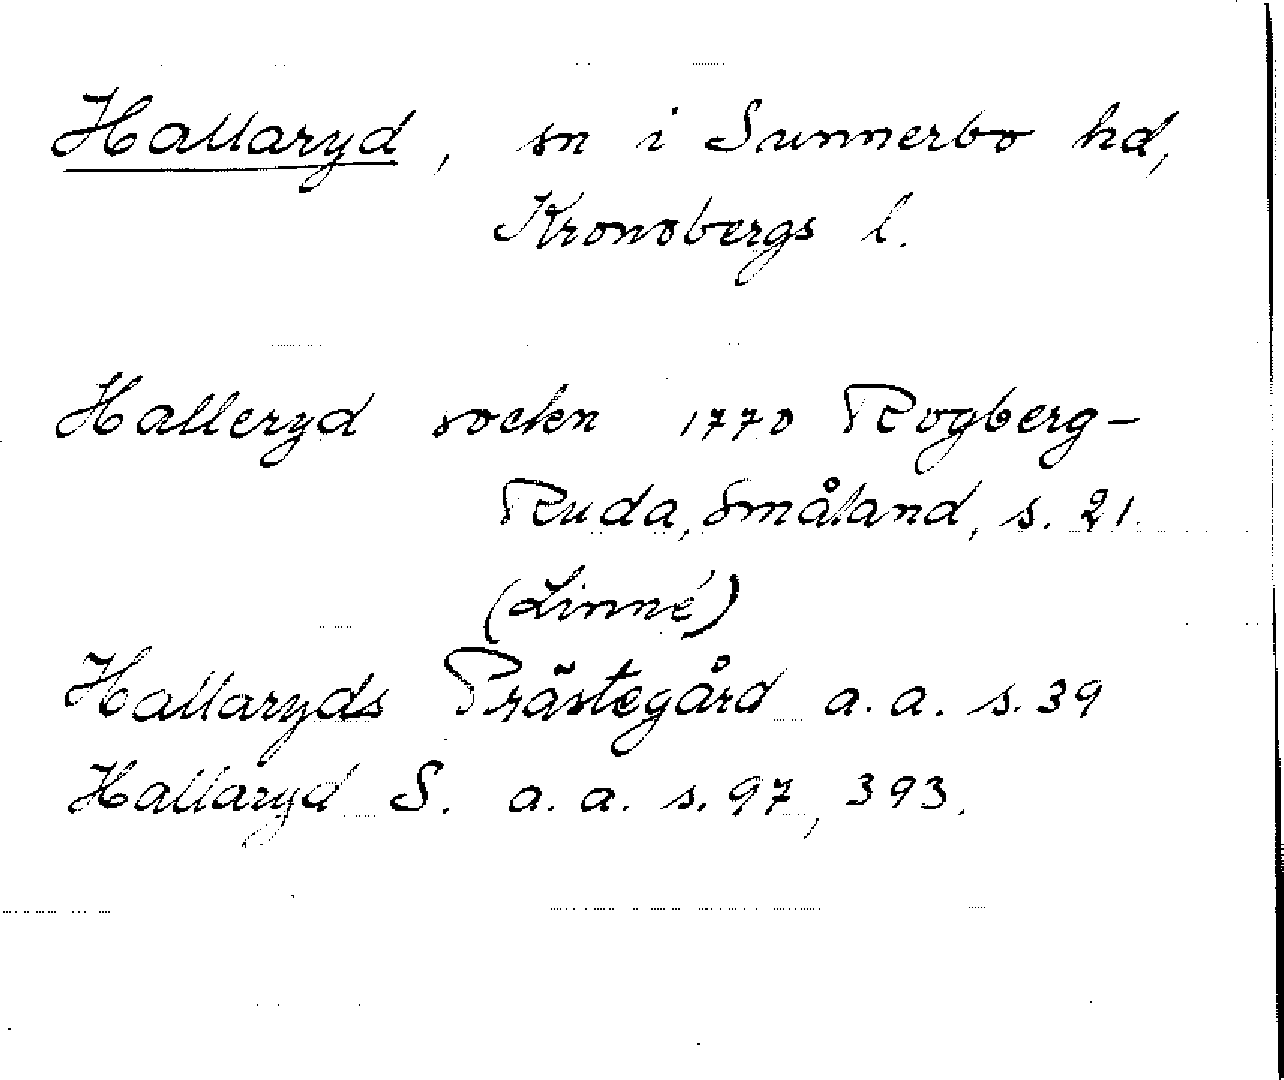 Hallaryd, sn i Sunnerbo hd,
Kronobergs l.
Halleryd sockn 1770 Rogberg-
Ruda, Småland, s. 21.
(Linné)
Hallaryds Prästegård a. a. s. 39
Hallaryd S. a. a. s. 97, 393.